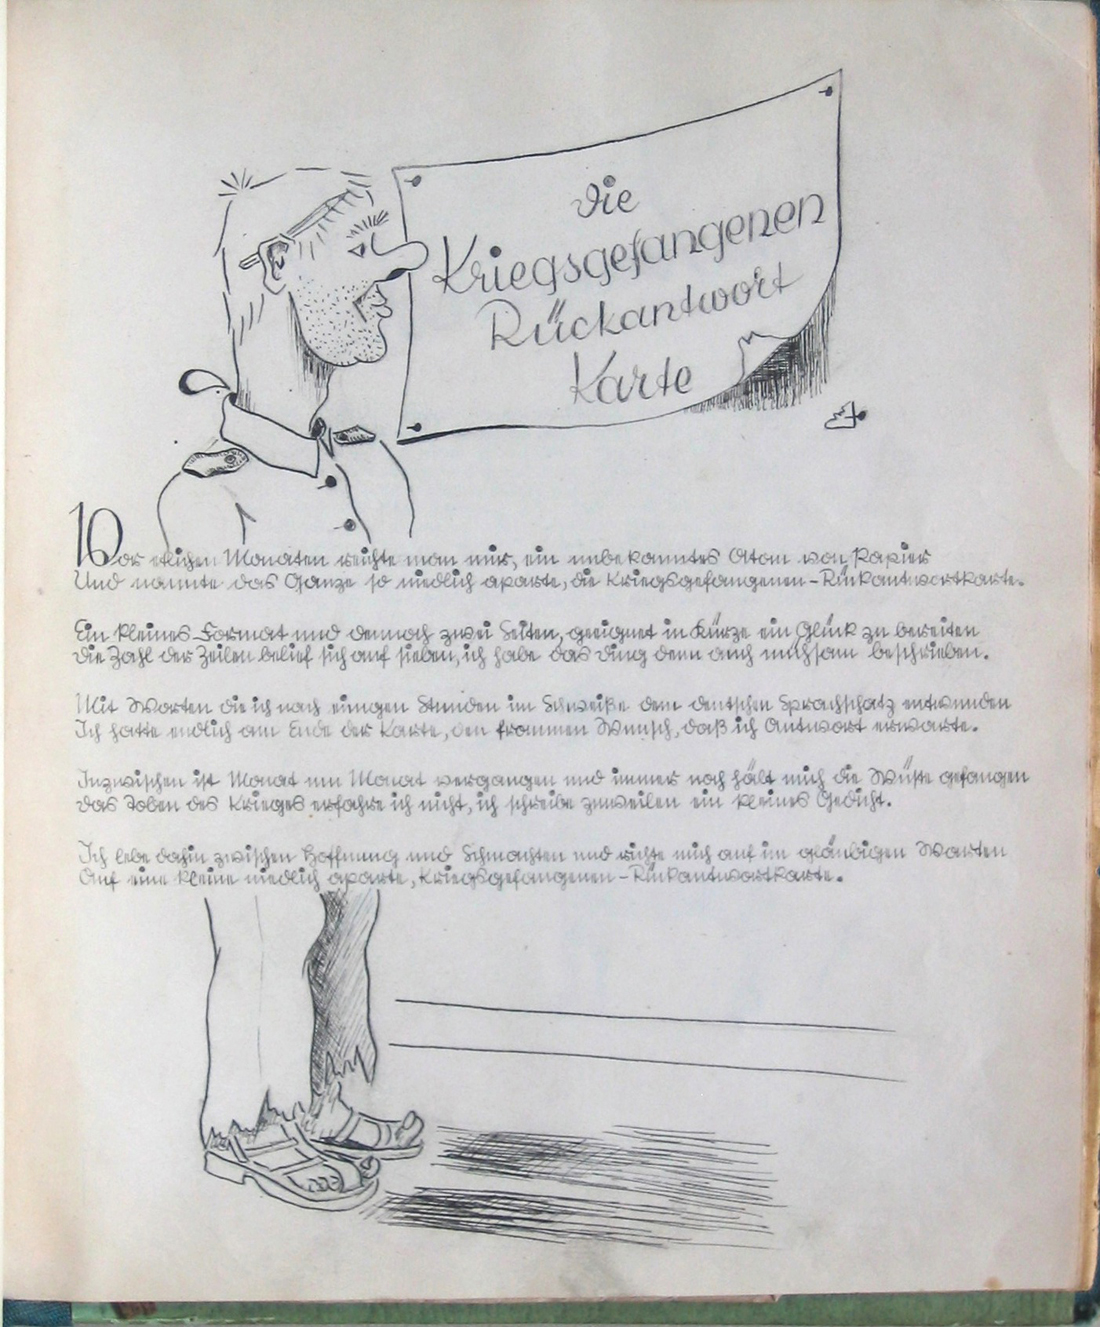 Die
Kriegsgefangenen
Rückantwort
Karte
Vor etlichen Monaten reichte man mir, ein unbekanntes Atom von Papier
Und nannte das Ganze so niedlich aparte, die Kriegsgefangenen-Rückantwortkarte.
Ein kleines Format und dennoch zwei Seiten, geeignet in Kürze ein Glück zu bereiten
Die Zahl der Zeilen belief sich auf sieben, ich habe das Ding denn auch mühsam beschrieben.
Mit Worten die ich nach einigen Stunden im Schweiße dem deutschen Sprachschatz entwunden
Ich hatte endlich am Ende der Karte, den frommen Wunsch, daß ich Antwort erwarte.
Inzwischen ist Monat um Monat vergangen und immer noch hält mich die Wüste gefangen
Das Toben des Krieges erfahre ich nicht, ich schreibe zuweilen ein kleines Gedicht.
Ich lebe dahin zwischen Hoffnung und Schmachten und richte mich auf im gläubigen Warten
Auf eine kleine niedlich aparte, Kriegsgefangenen-Rückantwortkarte.